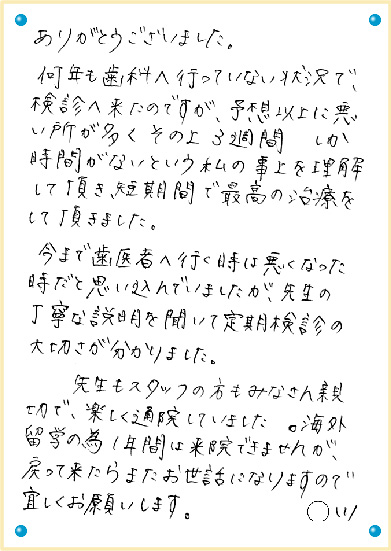 ありがとうございました。
何年も歯科へ行っていない状況で、
検診へ来たのですが、予想以上に悪
い所が多く その上 3週間 しか
時間がないという私の事上を理解
して頂き、短期間で最高の治療を
して頂きました。
今まで歯医者へ行く時は悪くなった
時だと思い込んでいましたが、先生の
丁寧な説明を聞いて定期検診の
大切さが分かりました。
先生もスタッフの方もみなさん親
切で、楽しく通院していました。海外
留学の為1年間は来院できませんが、
戻って来たらまたお世話になりますので
宜しくお願いします。 ○川